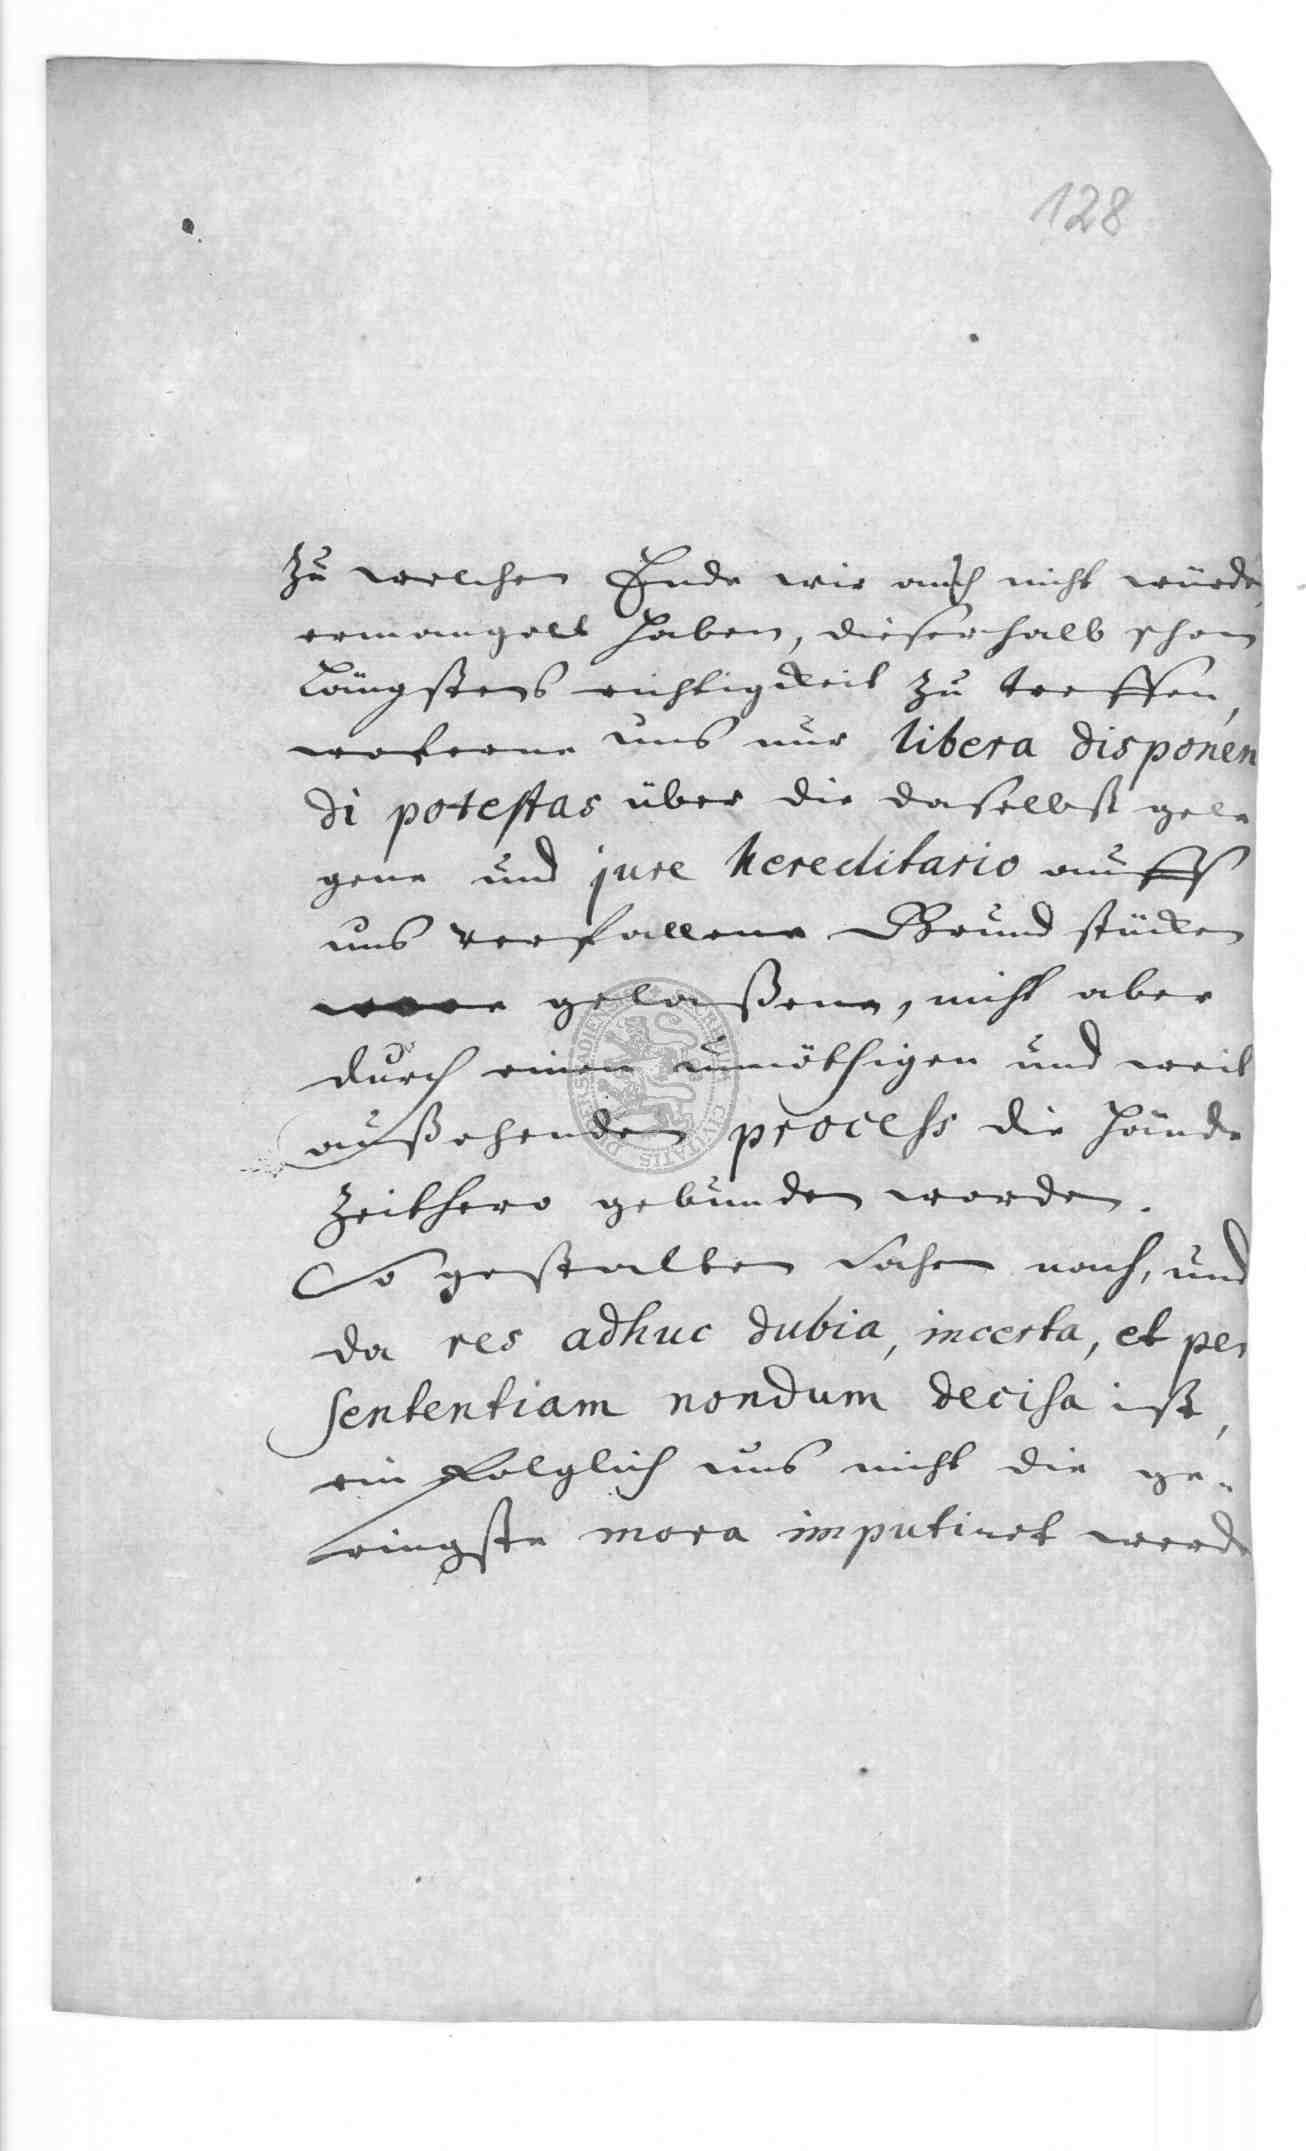 128
Zu welchen Ende wir auch nicht würde
ermangelt haben, dieserhalb schon
Längstens richtigkeit zu treffen,
woferne uns nur libera disponen
di potestas über die daselbst gele
gene und jure hereditario auff
uns verfallene Grund stücken
gelaßen, nicht aber
durch einen unnöthigen und weit
außehenden process die Hände
Zeithero gebunden worden.
So gestalten Sachen nach, und
da res adhuc dubia, incerta, et per
sententiam nondum decisa ist,
ein folglich uns nicht die ge-
ringste mora imputiret werde